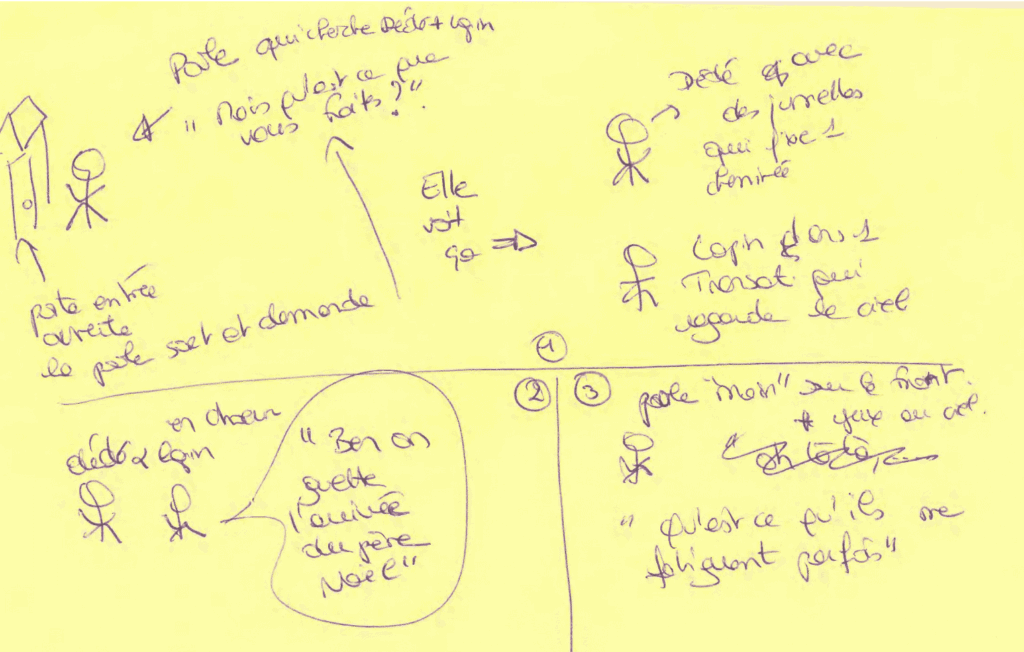 Poule qui cherche Dédé + Lapin
" Mais qu'est ce que
vous faites ? "
porte entrée
ouverte
la poule sort et demande
Elle
voit
ça ⇒
Dédé avec
des jumelles
qui fixe 1
cheminée
Lapin dans 1
Transat qui
regarde le ciel
①
②
en choeur
dédé & lapin
" Ben on
guette
l'arrivée
du père
Noël "
③
poule "main" sur le front.
+ yeux au ciel.
" qu'est ce qu'ils me
fatiguent parfois "